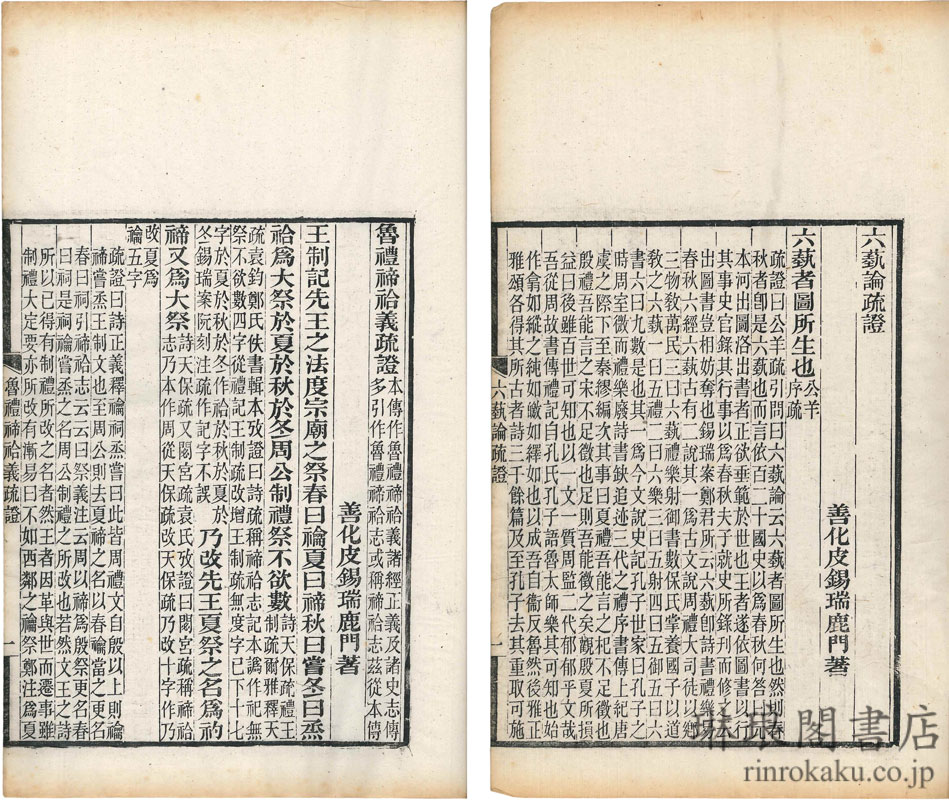 六蓺論疏證
善化皮錫瑞鹿門著
六蓺者圖所生也公羊序疏
疏證曰公羊疏引問曰六蓺論云六蓺者圖所生也然則春
秋者卽是六蓺也而言依百二十國史以爲春秋何答曰元
本河出圖洛出書者正欲垂範於世也王者遂依圖書以行
其事史官錄其行事以爲春秋夫子就史所錄刊而修之云
出圖書豈相妨奪也錫瑞案鄭君所云六蓺卽詩書禮樂易
春秋六經六蓺古有二說其一爲古文說周禮大司徒以鄉
三物敎萬民三曰六蓺禮樂射御書數保氏掌養國子以道
敎之六蓺一曰五禮二曰六樂三曰五射四曰五御五曰六
書六曰九數是也其一爲今文說史記孔子世家曰孔子之
時周室微而禮樂廢詩書缺追迹三代之禮序書傳上紀唐
虞之際下至秦繆編次其事曰夏禮吾能言之杞不足徵也
殷禮吾能言之宋不足徵也足則吾能徵之矣觀殷夏所損
益曰後雖百世可知也以一文一質周監二代郁郁乎文哉
吾從周故書傳禮記自孔氏孔子語魯大師樂其可知也始
作翕如縱之純如皦如繹如也以成吾自衞反魯然後樂正
雅頌各得其所古者詩三千餘篇及至孔子去其重取可施
六蓺論疏證 一
魯禮禘祫義疏證本傳作魯禮禘祫義諸經正義及諸史志傳
多引作魯禮禘祫志或稱禘祫志茲從本傳
善化皮錫瑞鹿門著
王制記先王之法度宗廟之祭春曰禴夏曰禘秋曰嘗冬曰烝
祫爲大祭於夏於秋於冬周公制禮祭不欲數詩天保疏王
制疏爾雅釋天
疏袁鈞鄭氏佚書輯本攷證曰詩疏稱禘祫志記本譌作祀無
祭不欲數四字從禮記王制疏改增王制疏無度字已下十七
字於夏於秋於冬作祫於秋於夏於
冬錫瑞案阮刻注疏作記字不誤乃改先王夏祭之名爲礿
禘又爲大祭詩天保疏又閟宮疏袁氏攷證曰閟宮疏稱禘祫
志乃作本作周從天保疏改天保疏乃改十字作乃
改夏爲
禴五字
疏證曰詩正義釋禴祠烝嘗曰此皆周禮文自殷以上則禴
禘嘗烝王制文也至周公則去夏禘之名以春禴當之更名
春曰祠引禘祫志云云曰祭義注云周以禘爲殷祭更名春
曰祠是祠禴嘗烝之名周公制禮之所改也若然文王之詩
所以已得有制禮所改之名者然王者因革與世而遷事雖
制禮大定要亦所改有漸易曰不如西鄰之禴祭鄭注爲夏
魯禮禘祫義疏證 一
琳琅閣書店
rinrokaku.co.jp